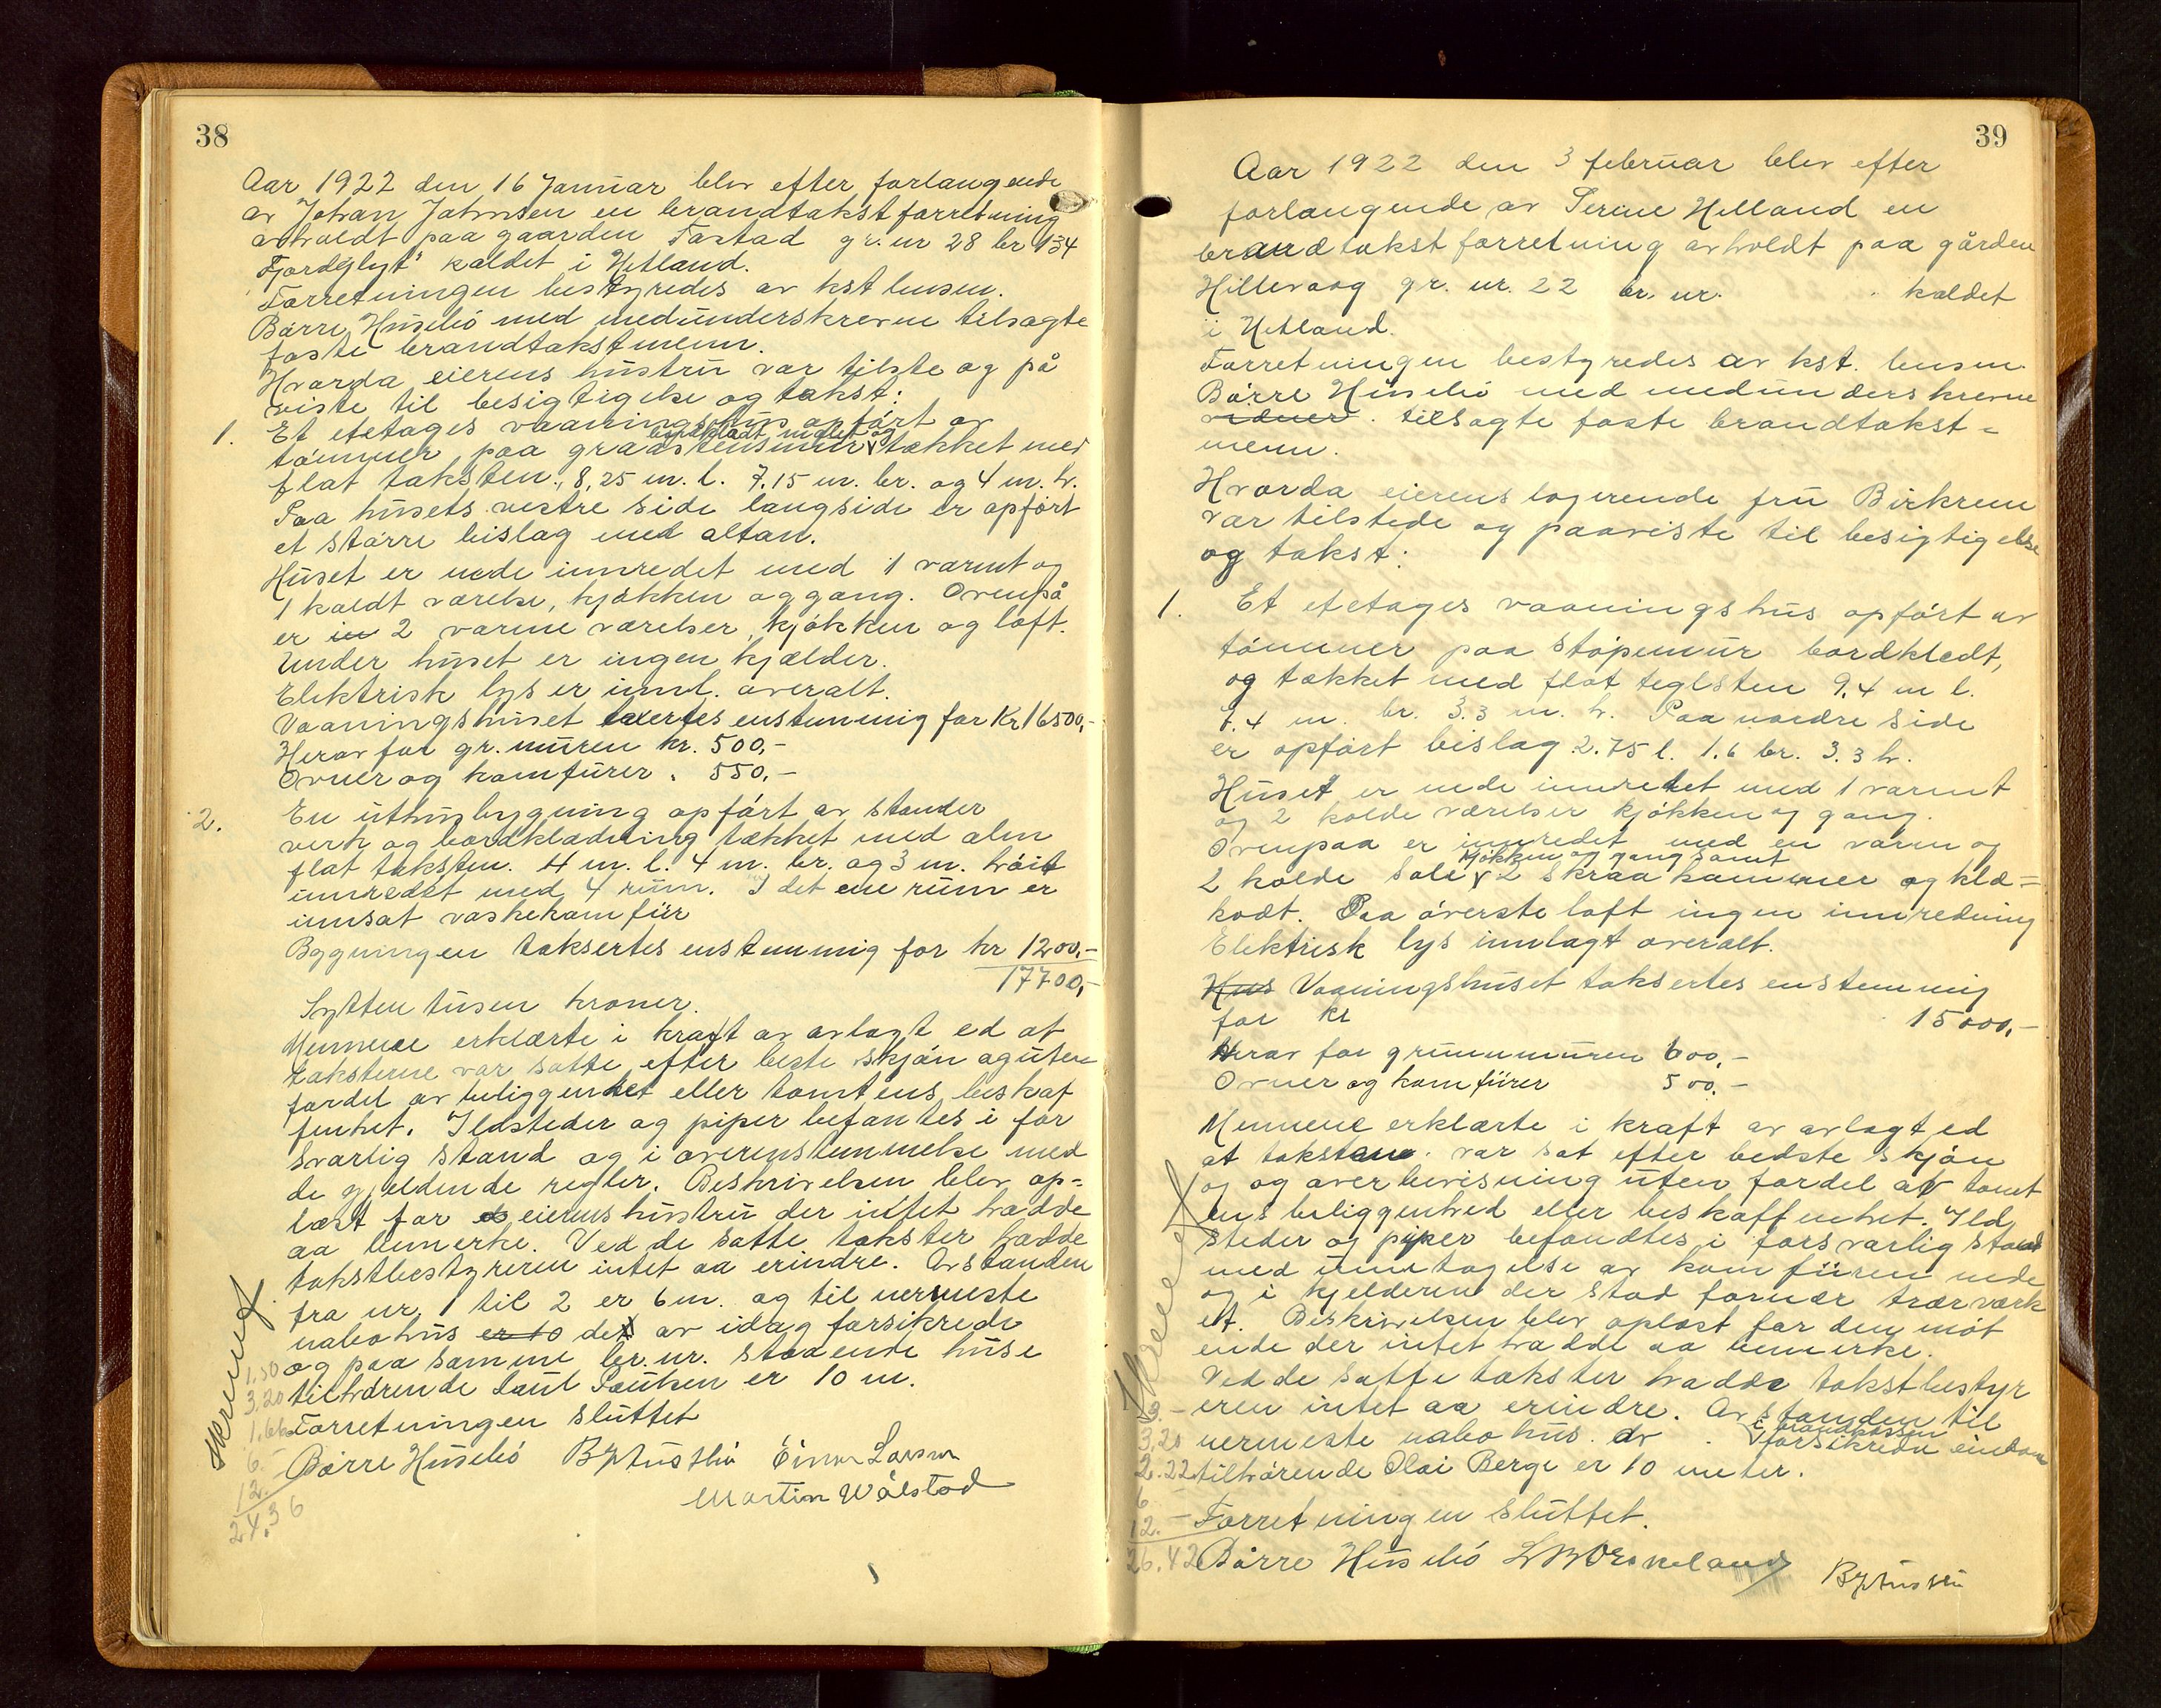 38
Aar 1922 den 16 Januar blev efter forlangende
av Johan Johnsen en brandtakstforretning
avholdt paa gaarden Tastad gr. nr 28 br 134
"Fjordglyt" kaldet i Hetland.
Forretningen bestyredes av kst lensm.
Børre Husebø med medunderskrevne tilsagte
faste brandtakstmenn.
Hvorda eierens hustru var tilste og på
viste til besigtigelse og takst:
1. Et etetages vaaningshus opført av
bordklædt malet og
tømmer paa graastensmur tækket med
flat taksten. 8,25 m. l. 7.15 m. br. og 4 m. h.
Paa husets vestre side langside er opført
et større bislag med altan.
Huset er nede innredet med 1 varmt og
1 koldt værelse, kjøkken og gang. Ovenpå
er in 2 varme værelser, kjøkken og loft.
Under huset er ingen kjælder.
Elektrisk lys er innl. overalt.
Vaaningshuset taxertes enstemmig for Kr 16500,-
Herav for gr. muren kr. 500,-
Ovner og komfurer " 550,-
2. En uthusbygning opført av stender
verk og bordklædning tækket med alm
flat taksten. 4 m. l. 4 m. br. og 3 m. høit
innredet med 4 rum. I det ene rum er
innsat vaskekomfür
Bygningen taksertes enstemmig for kr 1200,-
17700,-
Sytten tusen kroner.
Mennene erklærte i kraft av avlagt ed at
taksterne var satte efter beste skjøn og uten
fordel av beliggenhet eller tomtens beskaf
fenhet. Ildsteder og piper befantes i for
svarlig stand og i overenstemmelse med
de gjeldende regler. Beskrivelsen blev op-
læst for eierens hustru der intet hadde
aa bemerke. Ved de satte takster hadde
takstbestyreren intet aa erindre. Avstanden
fra nr. 1 til 2 er 6 m. og til nermeste
nabohus er 10 det av idag forsikrede
og paa samme br. nr. staaende huse
tilhørende Paulsen er 10 m.
Forretningen sluttet
Børre Husebø B Husebø Einar Larsen
Martin Wålstad
Skrevet
1.50
3,20
1,66
6.-
12.-
24,36
39
Aar 1922 den 3 februar blev efter
forlangende av Serine Helland en
brandtakstforretning avholdt paa gården
Hillevaag gr. nr. 22 br. nr. kaldet
i Hetland.
Forretningen bestyredes av kst. lensm.
Børre Husebø med medunderskrevne
vidner. tilsagte faste brandtakst-
menn.
Hvorda eierens logerende fru Birkrem
var tilstede og paaviste til besigtigelse
og takst:
1. Et etetages vaaningshus opført av
tømmer paa støpemur bordkledt,
og tækket med flat teglsten 9,4 m l.
7.4 m. br. 3.3 m. h. Paa nordre side
er opført bislag 2.75 l. 1.6 br. 3.3 h.
Huset er nede innredet med 1 varmt
og 2 kolde værelser kjøkken og gang.
Ovenpaa er innredet med en varm og
kjøkken og gang samt
2 kolde sale 2 skraa kammer og klæ-
kodt. Paa øverste loft ingen innredning
Elektrisk lys innlagt overalt.
Hus Vaaningshuset taksertes enstemmig
for kr 15000,-
Herav for grunnmuren 600,-
Ovner og komfürer 500,-
Mennene erklærte i kraft av avlagt ed
at taksten var sat efter bedste skjøn
og og overbevisning uten fordel av tomt
ens beliggenhed eller beskaffenhet. Ild
steder og piper befandtes i forsvarlig stand
med unntagelse av komfüren nede
og i kjelderen der stod fornær trærverk
et. Beskrivelsen blev oplæst for den møt
ende der intet hadde aa bemerke.
Ved de satte takster hadde takstbestyr
eren intet aa erindre. Avstanden til
i brandkassen
nermeste nabohus. av forsikrede eiendom
tilhørende Olai Berge er 10 meter.
Forretningen sluttet.
Børre Husebø B Husebø
Skrevet
3.-
3,20
2.22
6.-
12.-
26.42